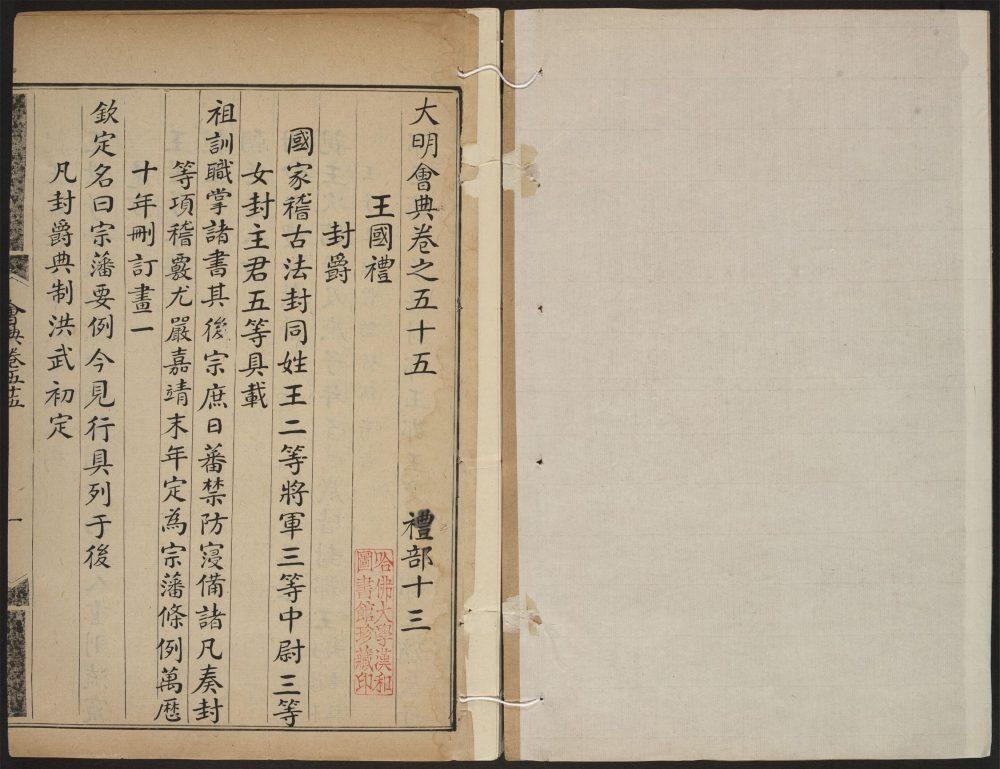 大明會典卷之五十五 禮部十三
王國禮
封爵
國家稽古法封同姓王二等將軍三等中尉三等
女封主君五等具載
祖訓職掌諸書其後宗庶日蕃禁防寖備諸凡奏封
等項稽覈尤嚴嘉靖末年定為宗藩條例萬曆
十年刪訂畫一
欽定名曰宗藩要例今見行具列于後
凡封爵典制洪武初定
會典卷五十五
一
哈佛大學漢和
圖書館珍藏印